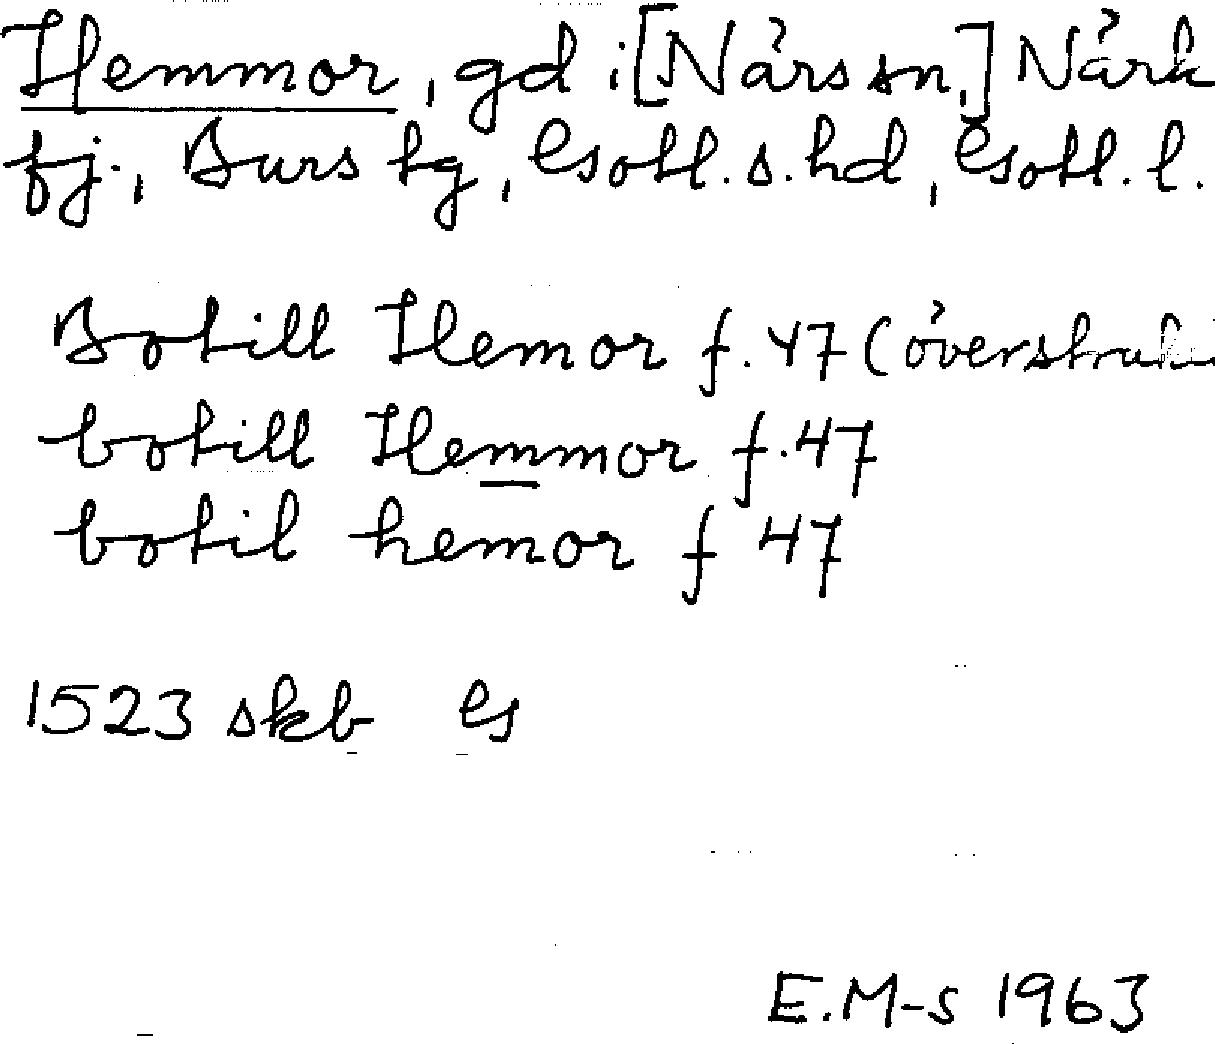 Hemmor, gd i [När s sn,] När k
fj., Burs tg, Gotl. s. hd, Gotl. l.
Botill Hemor f. 47 (överstruk
botill Hemmor f. 47
botil hemor f 47
1523 skb G
E.M-s 1963